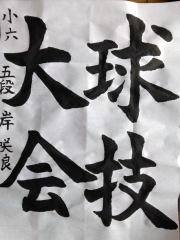 球技
大会
小六 五段 岸 咲良